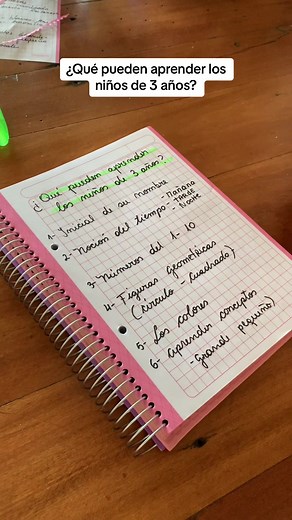 ¿Qué pueden aprender los
niños de 3 años?
¿Qué pueden aprender
los niños de 3 años?
1- Inicial de su nombre
2- Noción del tiempo - Mañana
- TARDE
- Noche
3- Números del 1-10
4- Figuras geométricas
(círculo - cuadrado)
5- Los colores
6- aprender conceptos
- grande pequeño)